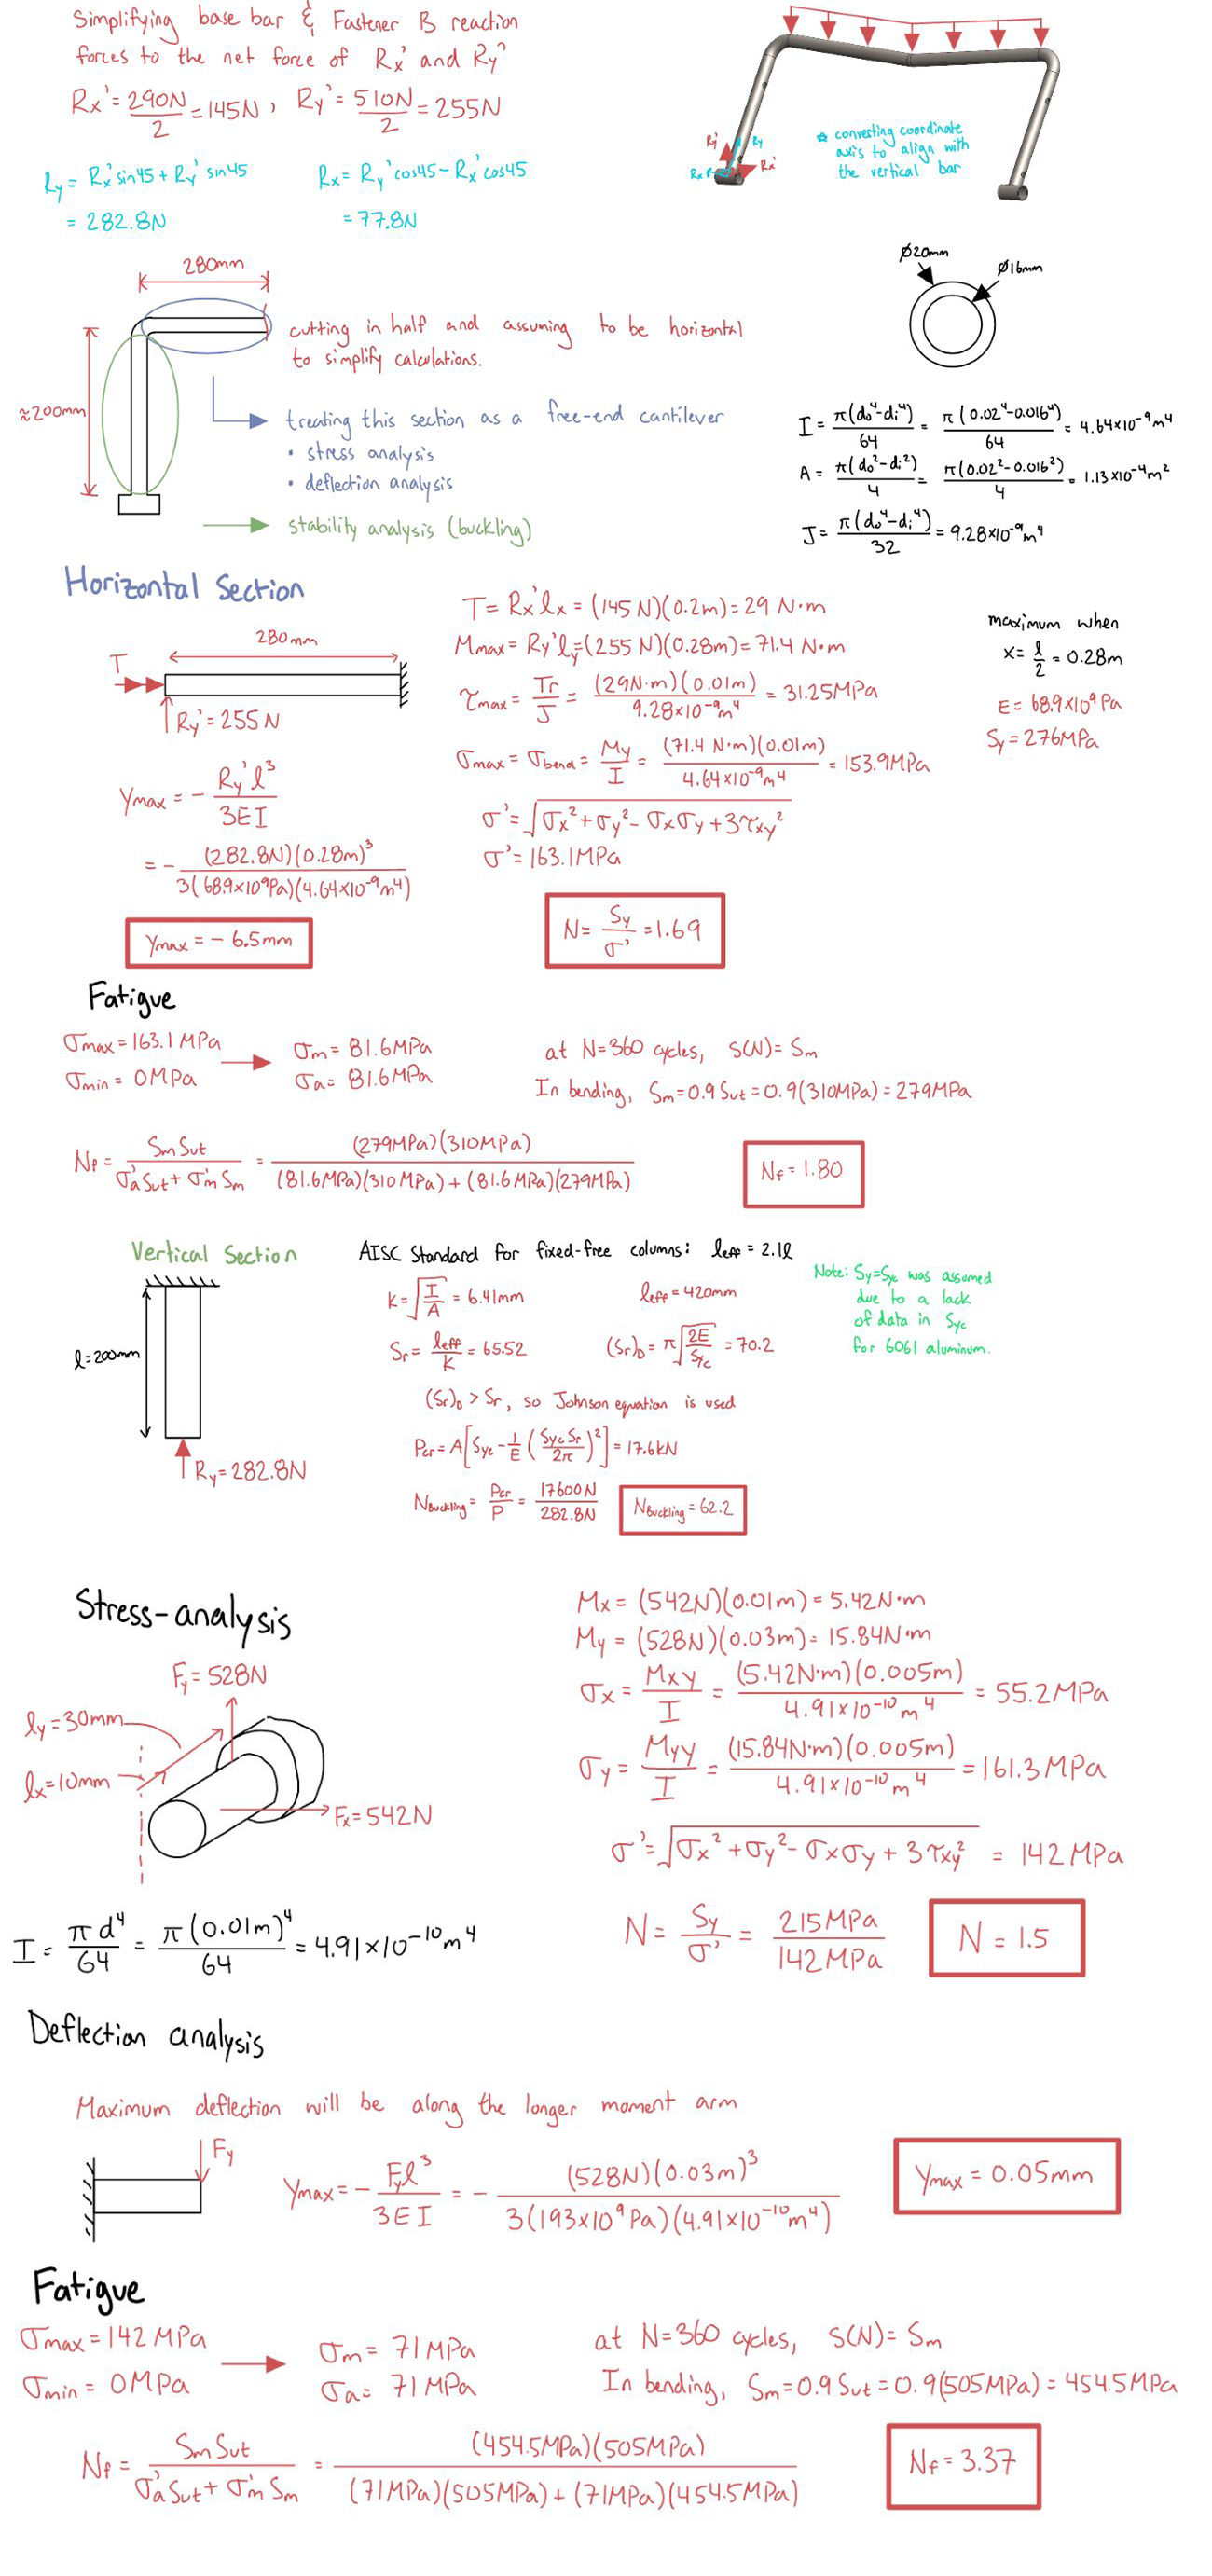 Simplifying base bar & Fastener B reaction
forces to the net force of Rx' and Ry'
Rx' = 290N/2 = 145N, Ry' = 510N/2 = 255N
Ry = Rx' sin45 + Ry' sin45
= 282.8N
Rx = Ry' cos45 - Rx' cos45
= 77.8N
Ry' Ry
Rx Rx'
* converting coordinate
axis to align with
the vertical bar
280mm
≈200mm
cutting in half and assuming to be horizontal
to simplify calculations.
treating this section as a free-end cantilever
• stress analysis
• deflection analysis
stability analysis (buckling)
Ø20mm
Ø16mm
I = π(do⁴-di⁴)/64 = π(0.02⁴-0.016⁴)/64 = 4.64×10⁻⁹m⁴
A = π(do²-di²)/4 = π(0.02²-0.016²)/4 = 1.13×10⁻⁴m²
J = π(do⁴-di⁴)/32 = 9.28×10⁻⁹m⁴
Horizontal Section
280mm
T
Ry' = 255N
ymax = - Ry'l³/3EI
= - (282.8N)(0.28m)³/3(68.9×10⁹Pa)(4.64×10⁻⁹m⁴)
ymax = - 6.5mm
T = Rx'lx = (145N)(0.2m) = 29 N·m
Mmax = Ry'ly = (255 N)(0.28m) = 71.4 N·m
τmax = Tr/J = (29N·m)(0.01m)/9.28×10⁻⁹m⁴ = 31.25MPa
σmax = σbend = My/I = (71.4 N·m)(0.01m)/4.64×10⁻⁹m⁴ = 153.9MPa
σ' = √(σx²+σy²-σxσy+3τxy²)
σ' = 163.1MPa
N = Sy/σ' = 1.69
maximum when
x = l/2 = 0.28m
E = 68.9×10⁹Pa
Sy = 276MPa
Fatigue
σmax = 163.1MPa
σmin = 0MPa
σm = 81.6MPa
σa = 81.6MPa
at N=360 cycles, S(N) = Sm
In bending, Sm = 0.9Sut = 0.9(310MPa) = 279MPa
Nf = SmSut/(σa'Sut + σm'Sm) = (279MPa)(310MPa)/((81.6MPa)(310MPa) + (81.6MPa)(279MPa))
Nf = 1.80
Vertical Section
l=200mm
Ry = 282.8N
AISC Standard for fixed-free columns: leff = 2.1l
K = √(I/A) = 6.41mm
leff = 420mm
Sr = leff/K = 65.52
(Sr)D = π√(2E/Syc) = 70.2
(Sr)D > Sr, so Johnson equation is used
Pcr = A[Syc - 1/E (SycSr/2π)²] = 17.6kN
NBuckling = Pcr/P = 17600N/282.8N
NBuckling = 62.2
Note: Sy=Syc was assumed
due to a lack
of data in Syc
for 6061 aluminum.
Stress-analysis
Fy = 528N
ly = 30mm
lx = 10mm
Fx = 542N
I = πd⁴/64 = π(0.01m)⁴/64 = 4.91×10⁻¹⁰m⁴
Mx = (542N)(0.01m) = 5.42N·m
My = (528N)(0.03m) = 15.84N·m
σx = Mxy/I = (5.42N·m)(0.005m)/4.91×10⁻¹⁰m⁴ = 55.2MPa
σy = Myy/I = (15.84N·m)(0.005m)/4.91×10⁻¹⁰m⁴ = 161.3MPa
σ' = √(σx²+σy²-σxσy+3τxy²) = 142MPa
N = Sy/σ' = 215MPa/142MPa
N = 1.5
Deflection analysis
Maximum deflection will be along the longer moment arm
Fy
ymax = - Fyl³/3EI = - (528N)(0.03m)³/3(193×10⁹Pa)(4.91×10⁻¹⁰m⁴)
ymax = 0.05mm
Fatigue
σmax = 142MPa
σmin = 0MPa
σm = 71MPa
σa = 71MPa
at N=360 cycles, S(N) = Sm
In bending, Sm = 0.9Sut = 0.9(505MPa) = 454.5MPa
Nf = SmSut/(σa'Sut + σm'Sm) = (454.5MPa)(505MPa)/((71MPa)(505MPa) + (71MPa)(454.5MPa))
Nf = 3.37